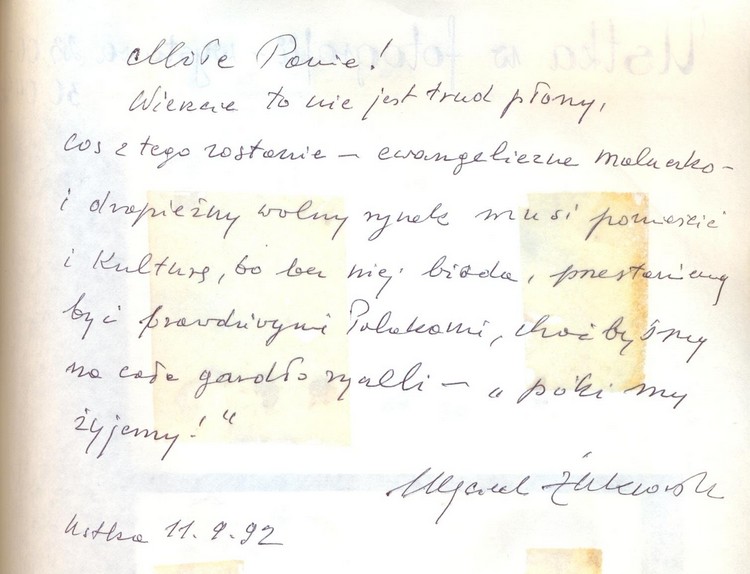 Miłe Panie!
Wierzcie to nie jest trud płony,
coś z tego zostanie – ewangeliczne maluczko –
i drapieżny wolny rynek musi pomieścić
i Kulturę, bo bez niej bieda, przestaniemy
być prawdziwymi Polakami, choćbyśmy
na całe gardło ryczeli – „póki my
żyjemy!“
Żukowski
Ustka 11.9.92
Ustka w fotografii